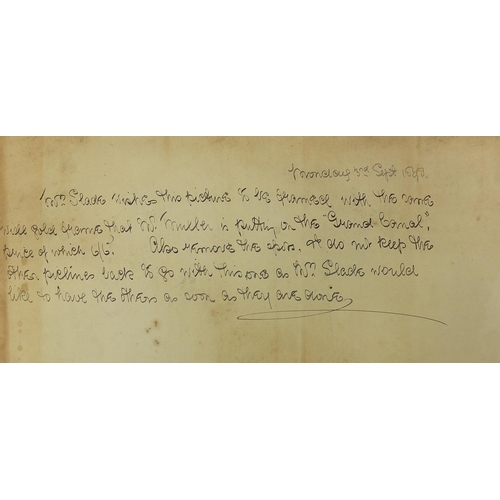 Monday 3rd Sept
Mrs Slade wishes this picture to be framed with the same
gold frame that Mr Miller is putting on the "Grand Canal",
price of which 6/6. Also remove the spots. & do not keep the
other pictures back to go with this one as Mrs Slade would
like to have the others as soon as they are done